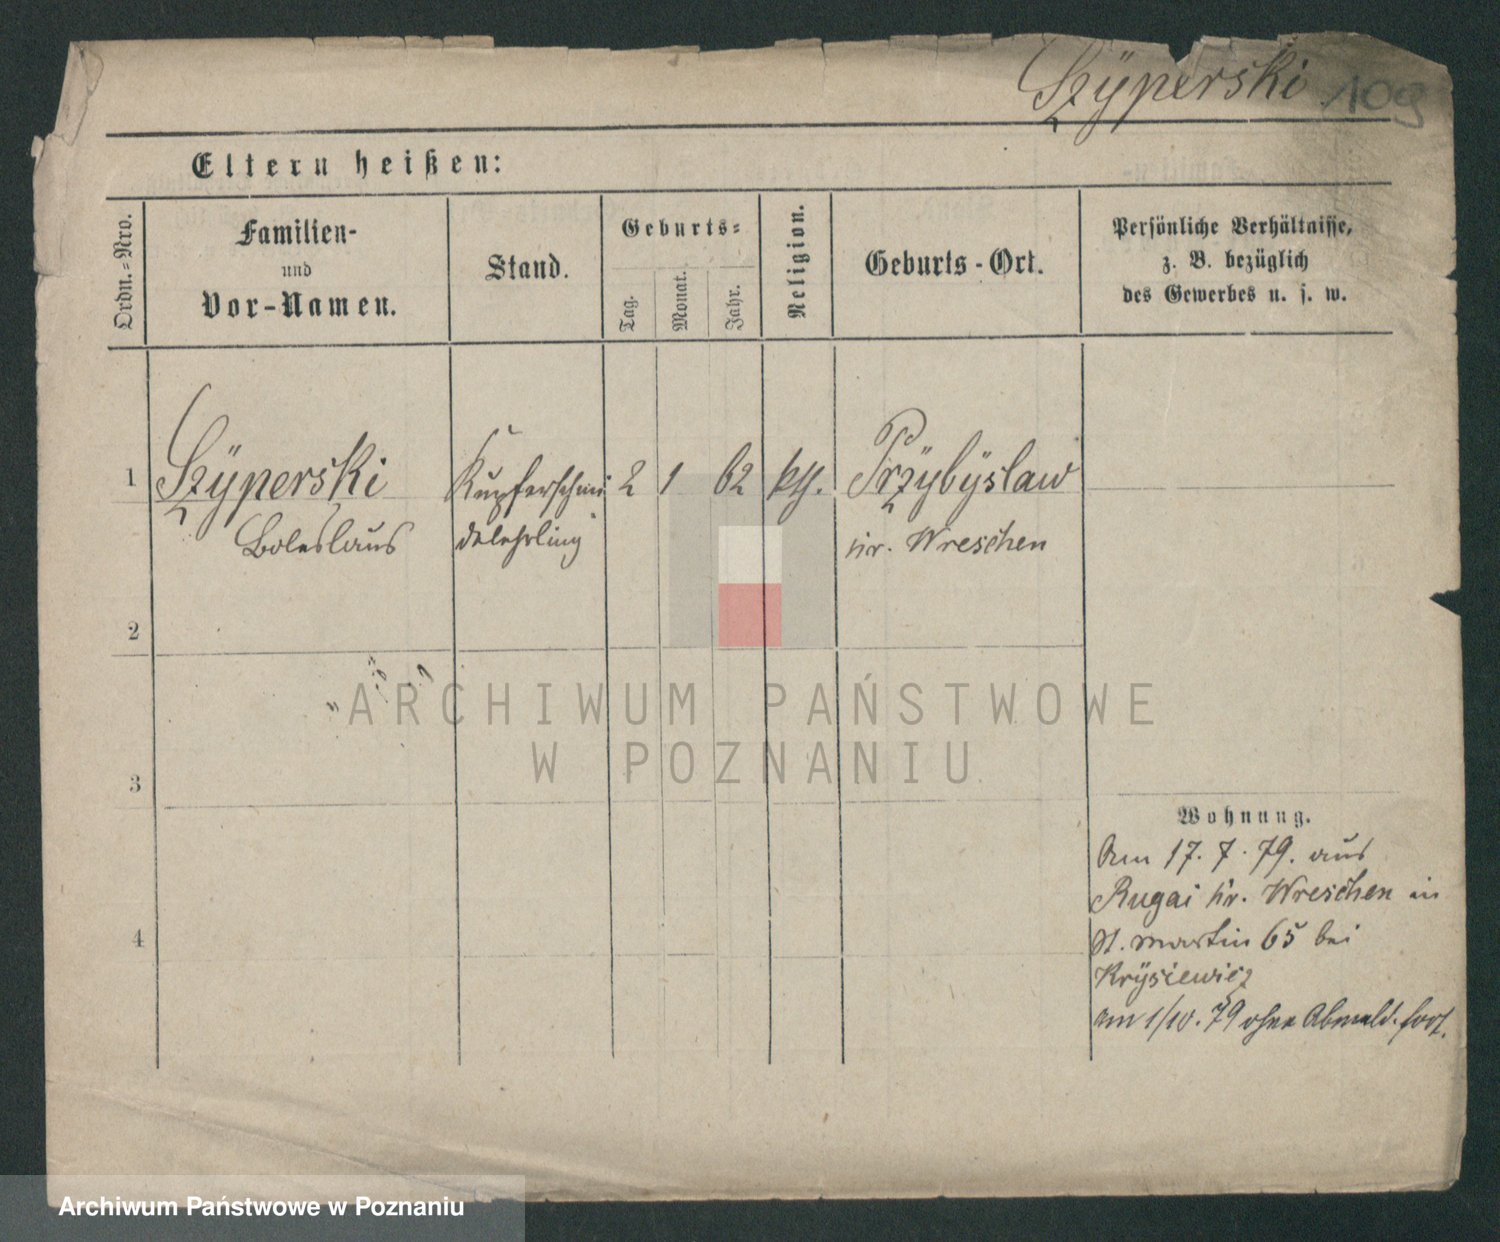 Szÿperski 109
Eltern heißen:
Ordn.=Nro.
Familien-
und
Vor-Namen.
Stand.
Geburts=
Tag.
Monat.
Jahr.
Religion.
Geburts-Ort.
Persönliche Verhältnisse,
z. B. bezüglich
des Gewerbes u. s. w.
1 Szÿperski Kupferschmi 2 1 62 kth. Przÿbÿslaw
Boleslaus delehrling Kr. Wreschen
2
3
4
Wohnung.
Am 17. 7. 79. aus
Rugai Kr. Wreschen in
St. Martin 65 bei
Krÿsiewicz
am 1/10. 79 ohne Abmeld. fort.
ARCHIWUM PAŃSTWOWE
W POZNANIU
Archiwum Państwowe w Poznaniu